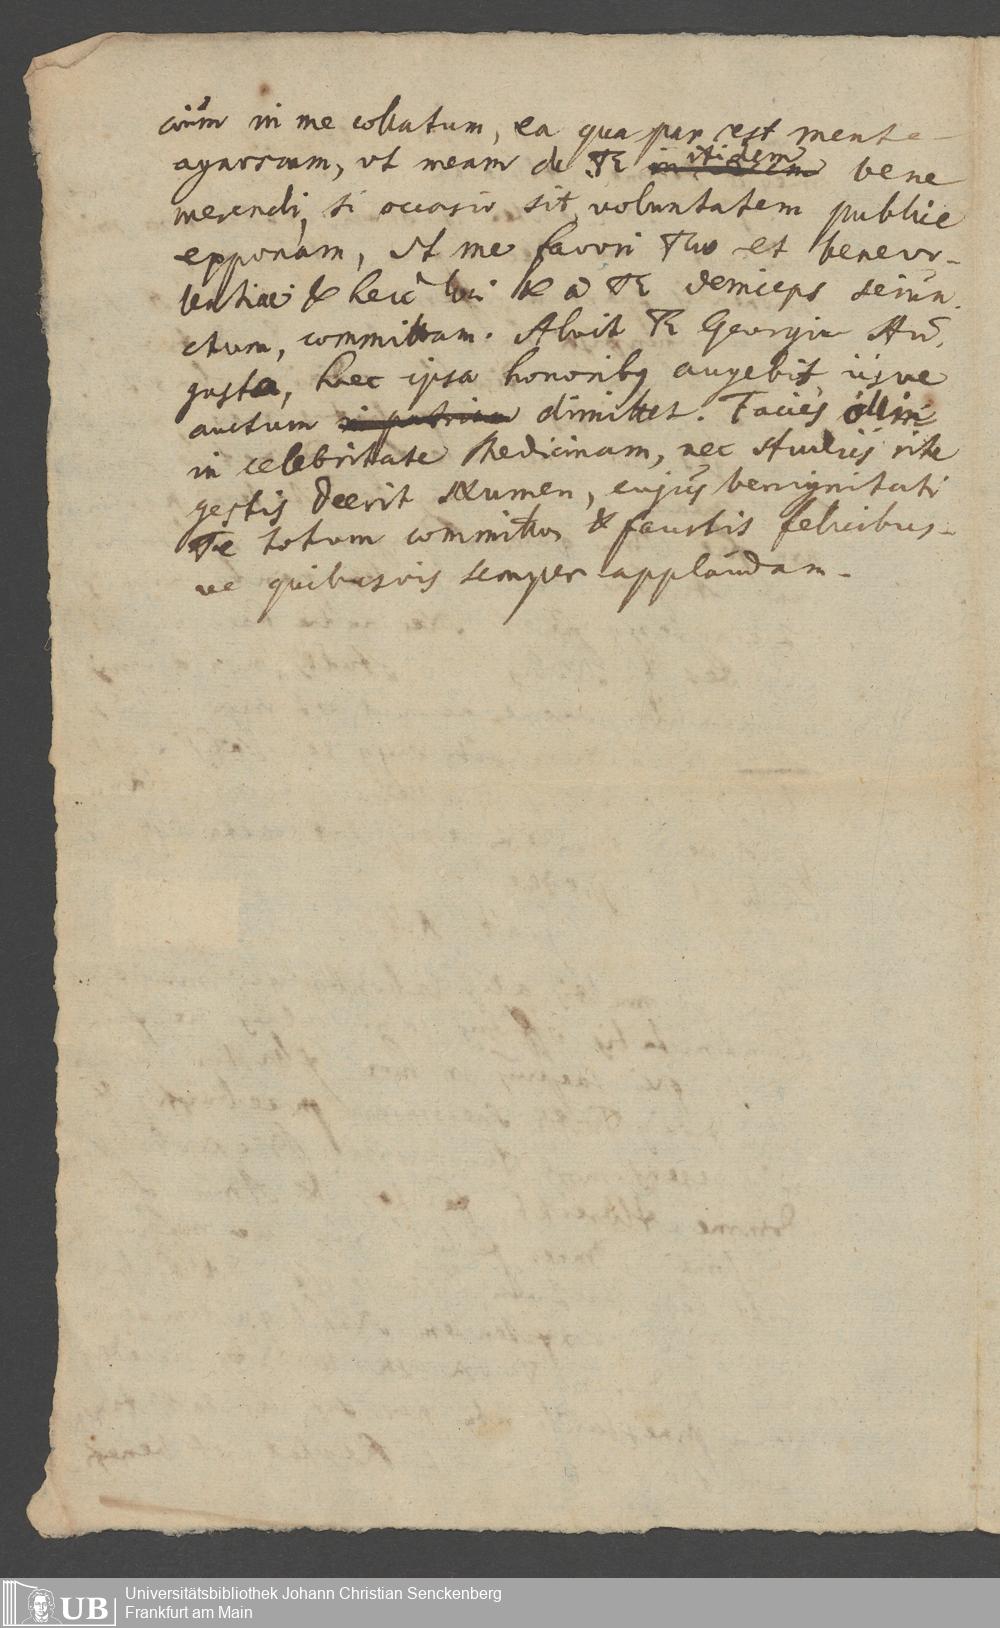 cium in me collatum, ea qua par est mente
agnoscam, ut meam de Te itidem bene
merendi, si occasio sit, voluntatem publice
exponam, ut me favori Tuo et benevo-
lentiae & heic loci & a Te deinceps seiun
ctum, committam. Aluit Te Georgia Au-
gusta, haec ipsa honoribus augebit, iisque
auctum in patriam dimittet. Facies illic
in celebritate Medicinam, nec studiis rite
gestis deerit Numen, cujus benignitati
Te totum committo & faustis felicibus-
ve quibusvis semper applaudam.
UB
Universitätsbibliothek Johann Christian Senckenberg
Frankfurt am Main